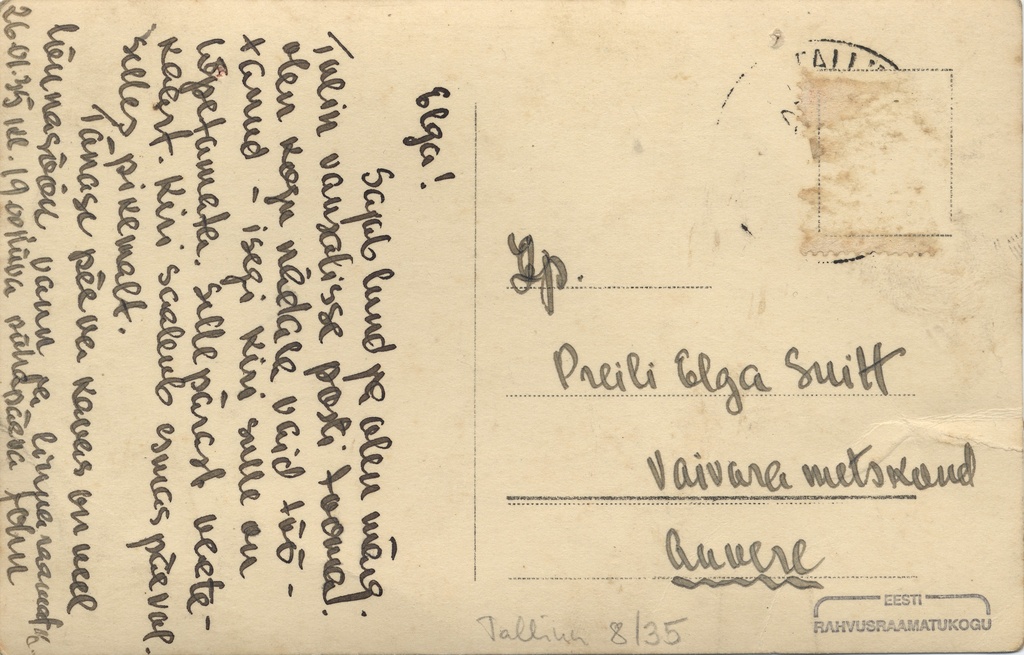 Elga!
Sajab lund ja olen märg.
Tulin vauzalisse posti tooma!
Olen kogu nädala vaid töö-
tanud – isegi kiri sulle on
lõpetamata. Sellepärast veete-
kaart. Kiri saaleub esmaspäeval
selles pikemalt.
Tänase päeva kavas on veel
lõunasöök, vann ja linnaraamatuk.
26.01.35 kl. 19 pühapäeva John
TALLIN
Lp.
Preili Elga Suitt
Vaivara metskond
Auvere
Tallinn 8/35
EESTI
RAHVUSRAAMATUKOGU